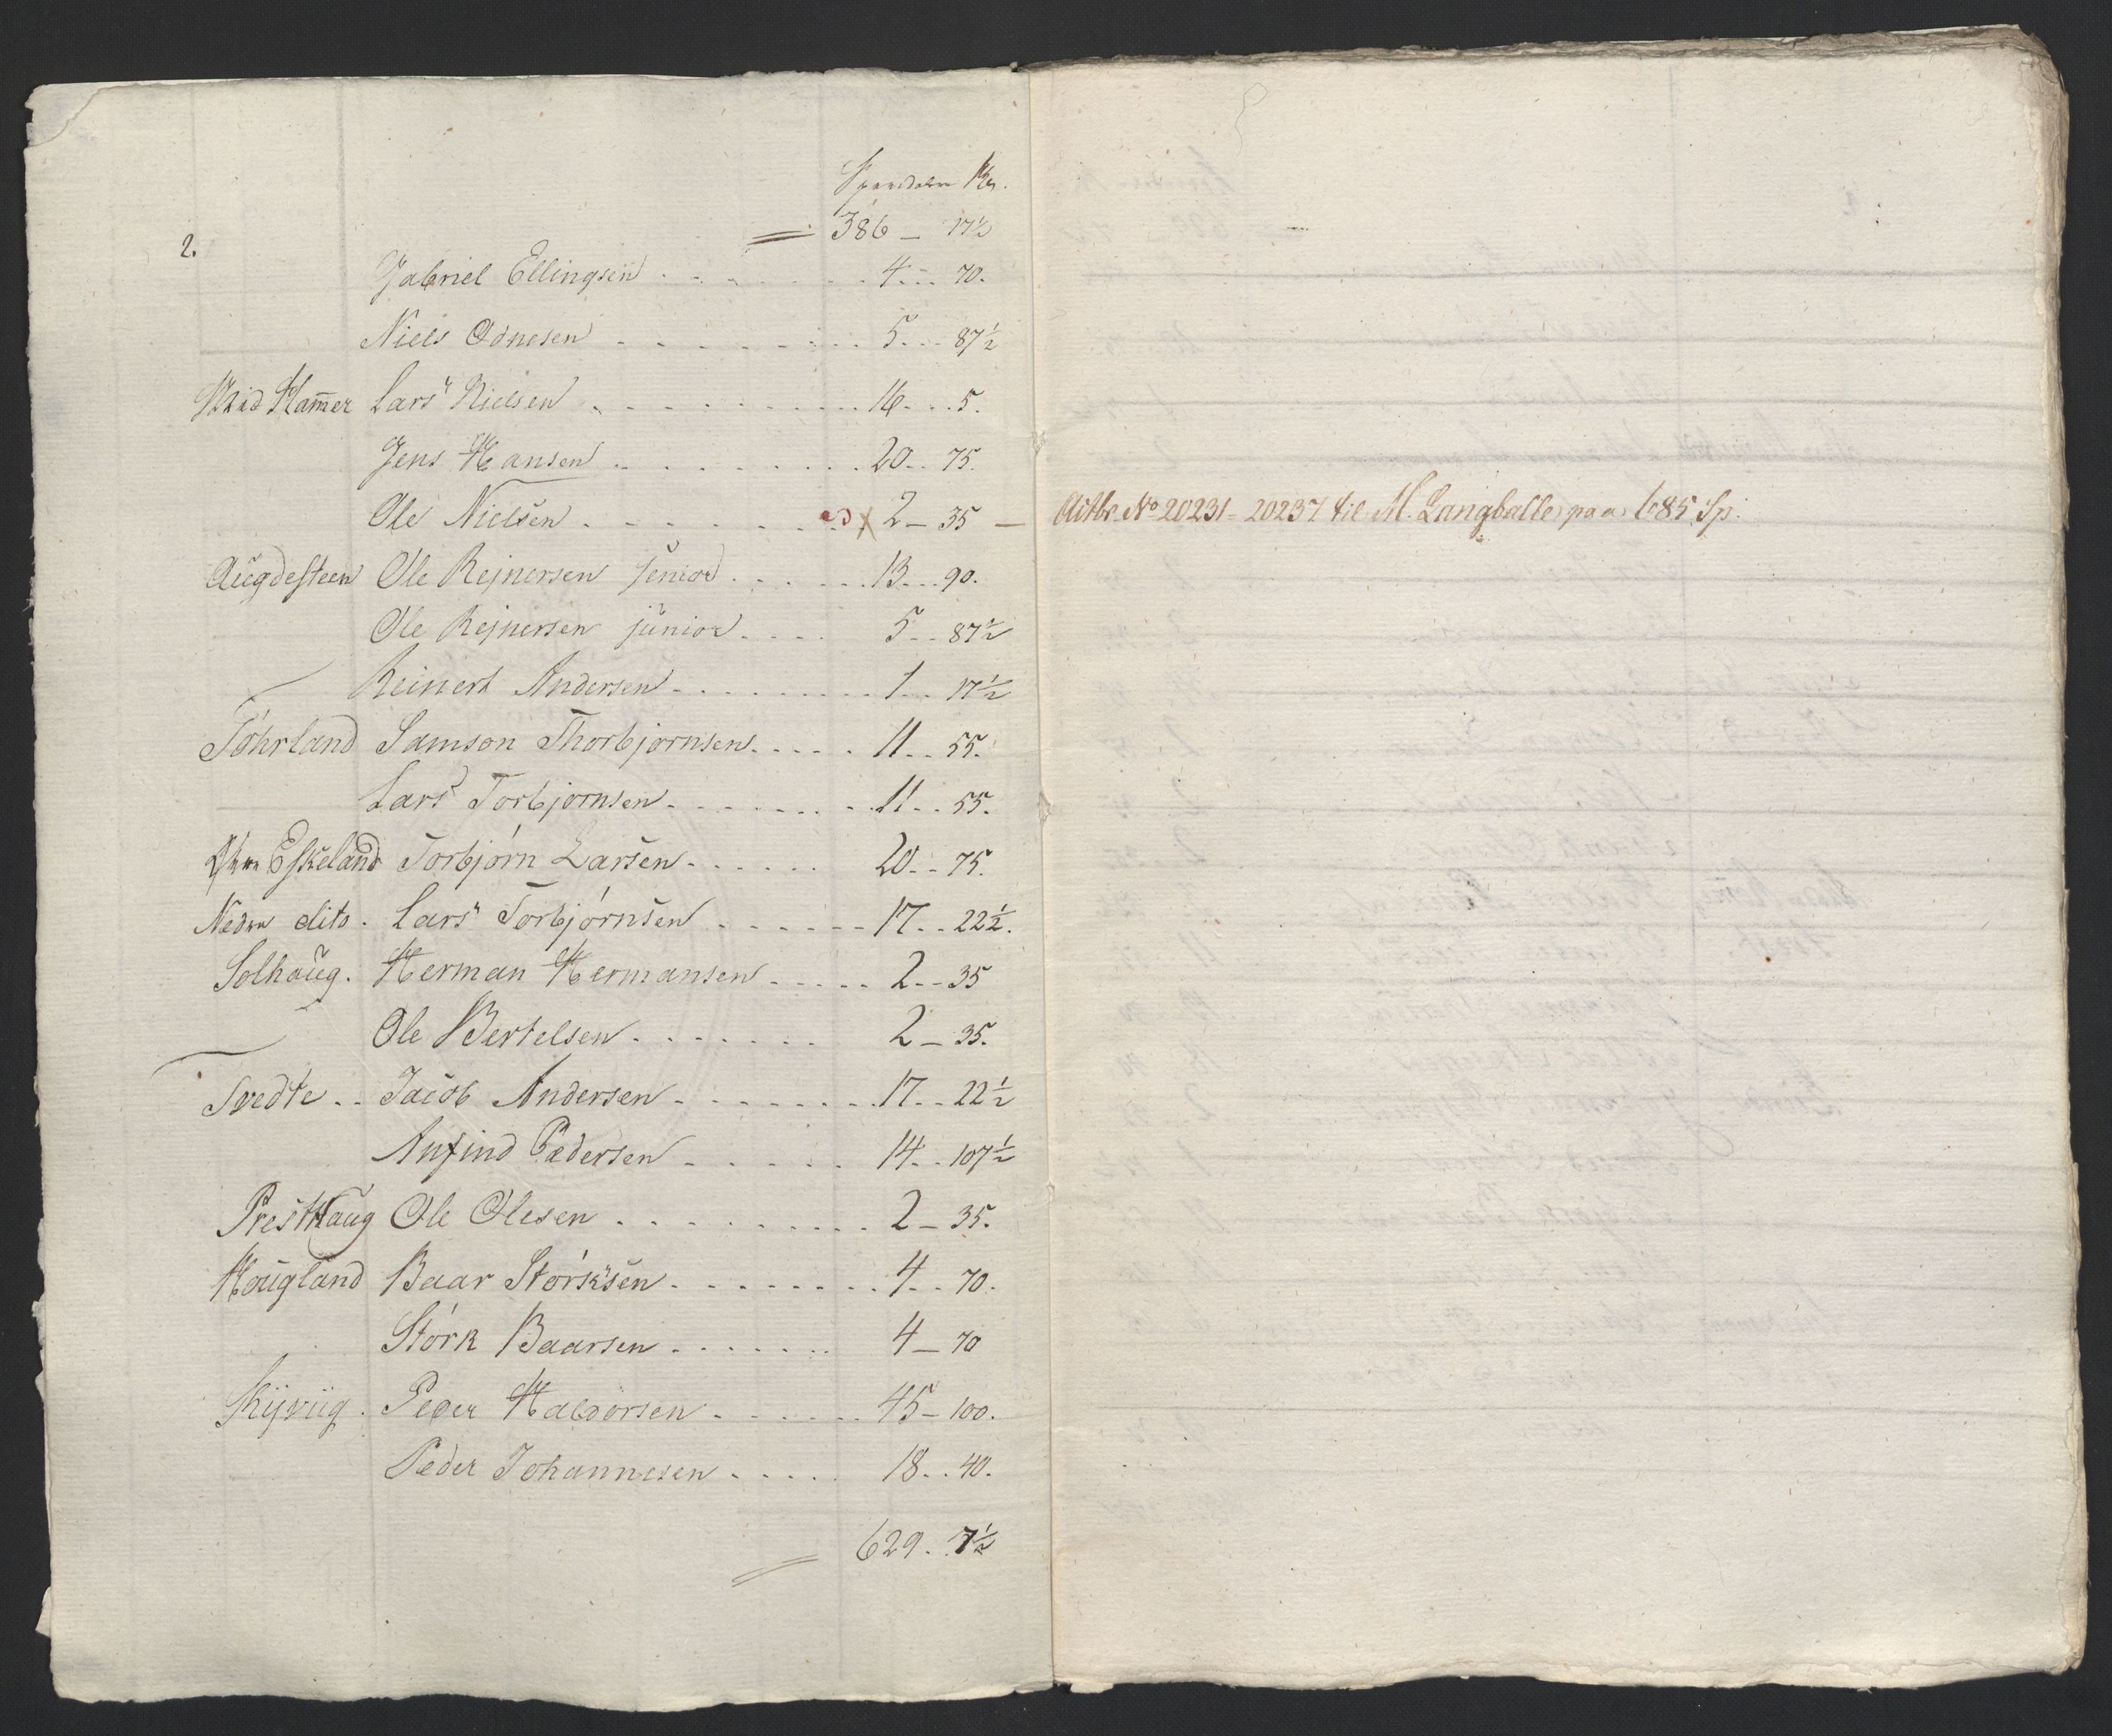 Speciedaler ß.
386 – 17½
2.
Gabriel Ellingsen . . . 4 . . 70.
Niels Odnesen . . . 5 . . 87½
Mid Ham̅er Lars Nielsen . . . 16 . . 5.
Jens Hansen . . . 20 . . 75.
Ole Nielsen . . . x 2 – 35 – Actbr. No 20231 – 20237 til M. Langballe paa 685 Sp.
Augdesteen Ole Rejnersen senior . . . 13 . . 90.
Ole Rejnersen junior . . . 5 . . 87½
Reinert Andersen . . . 1 . . 17½
Töhrland Samson Thorbjørnsen . . . 11 . . 55.
Lars Torbjørnsen . . . 11 . . 55.
Eskeland Torbjørn Larsen . . . 20 . . 75.
Nedre dito . Lars Torbjørnsen . . . 17 . . 22½.
Solhaug . Herman Hermansen . . . 2 – 35
Ole Bertelsen . . . 2 – 35.
Tvedte . . Jacob Andersen . . . 17 . . 22½
Anfind Pedersen . . . 14 . . 107½
Presthaug Ole Olesen . . . 2 – 35.
Hougland Baar Størksen . . . 4 . . 70.
Størk Baarsen . . . 4 – 70
Kijviig . Peder Haldorsen . . . 45 – 100.
Peder Johannesen . . . 18 . . 40.
629 . 7½